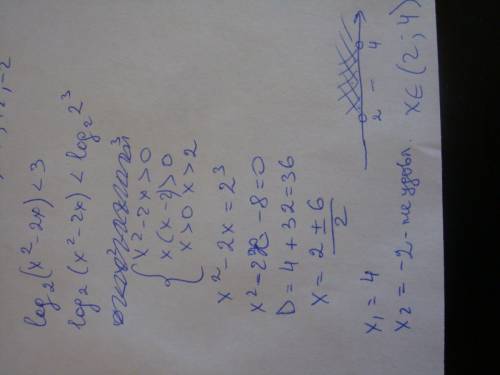 , -2
log₂(x²-2x)<3
log₂(x²-2x)<log₂2³
{ x²-2x>0
x(x-2)>0
x>0 x>2
x²-2x=2³
x²-2x-8=0
D=4+32=36
x=(2±6)/2
x₁=4
2 - 4
x₂=-2-не удовл. x∈(2;4)